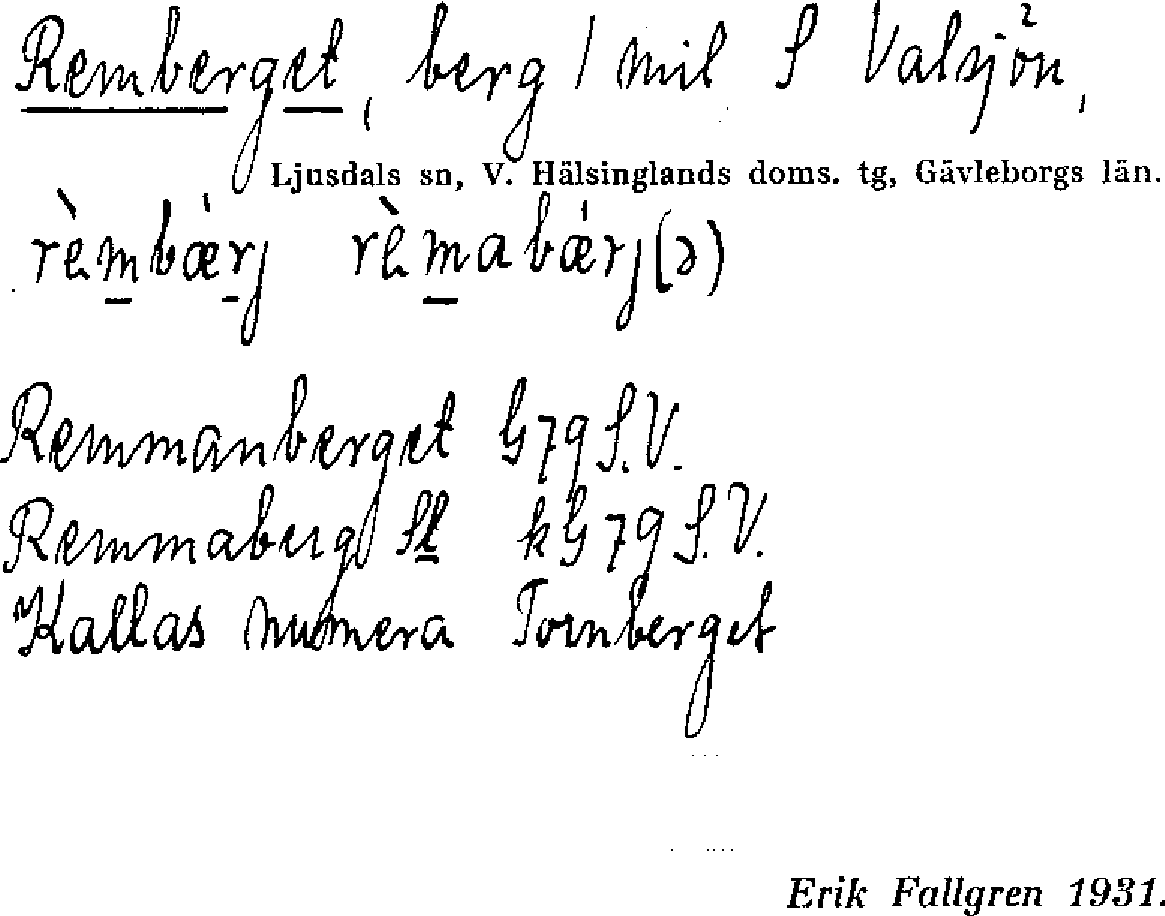 Remberget, berg 1 mil S Valsjön²,
Ljusdals sn, V. Hälsinglands doms. tg, Gävleborgs län.
rèmbǽrj rèmabǽrj(ə)
Remmanberget G79 S.V.
Remmaberg St kG79 S.V.
Kallas numera Tornberget
Erik Fallgren 1931.